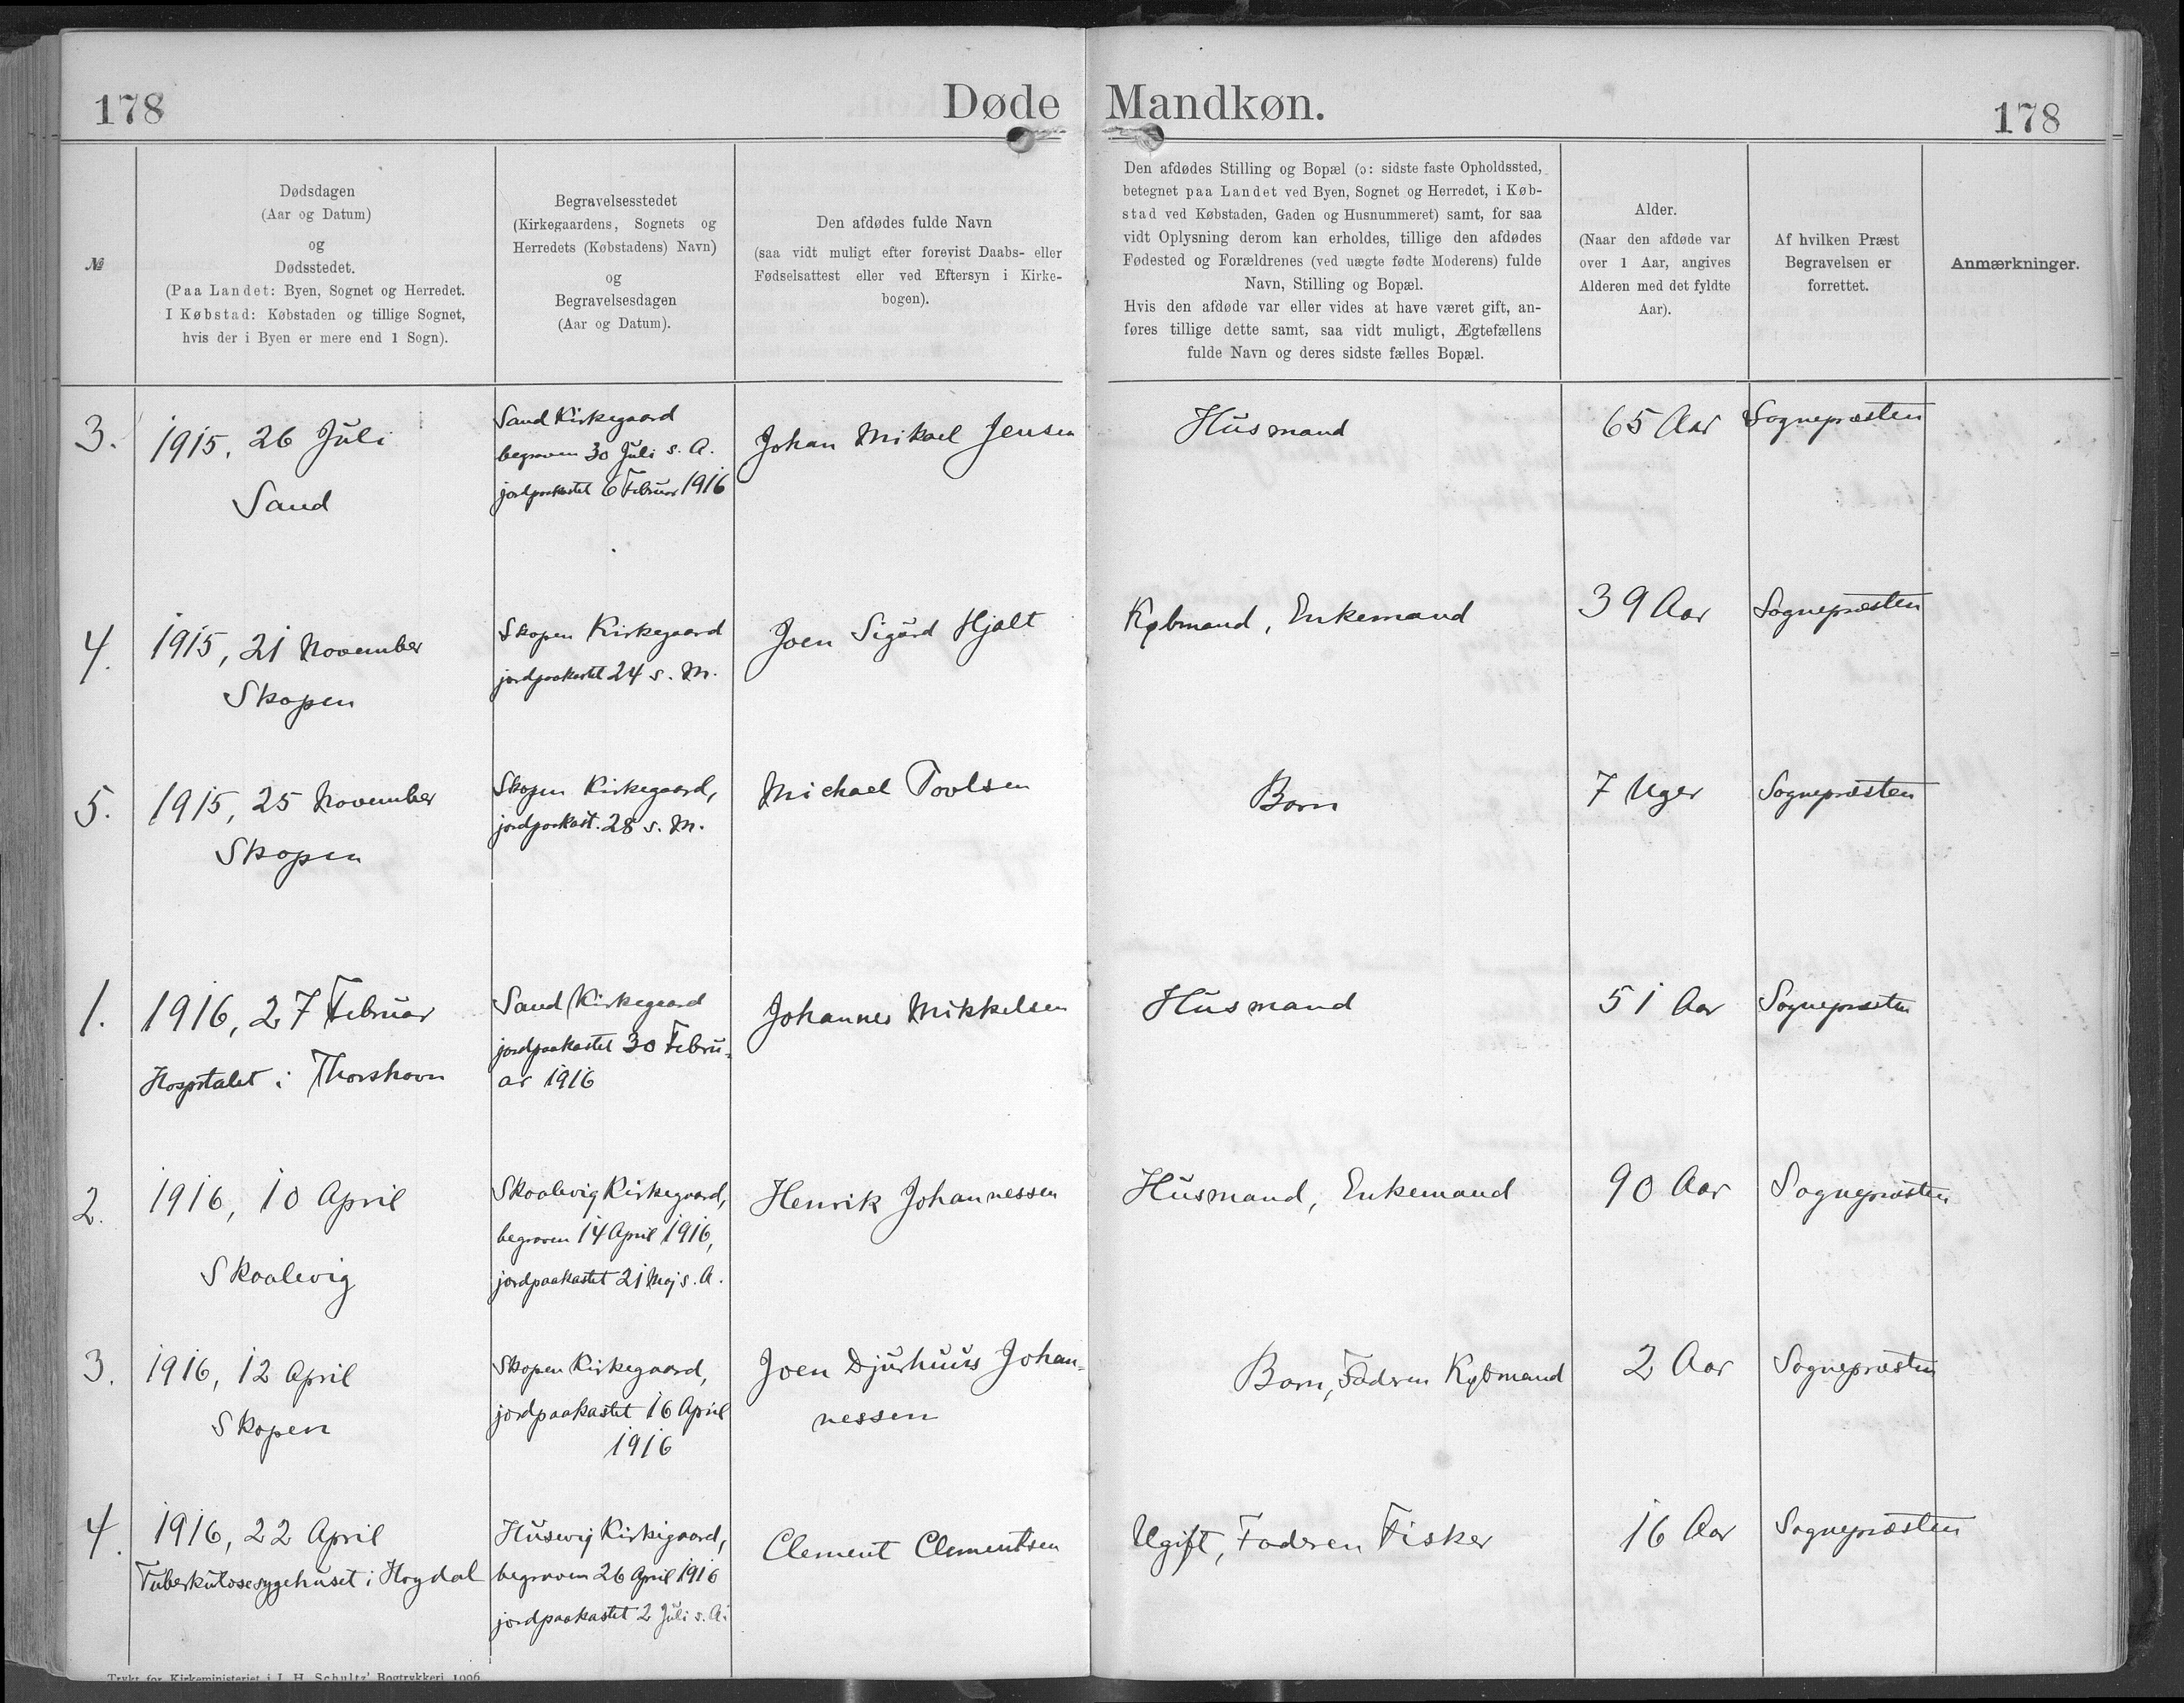 178
Døde Mandkøn.
178
№
Dødsdagen
(Aar og Datum)
og
Dødsstedet.
(Paa Landet: Byen, Sognet og Herredet.
I Købstad: Købstaden og tillige Sognet,
hvis der i Byen er mere end 1 Sogn).
Begravelsesstedet
(Kirkegaardens, Sognets og
Herredets (Købstadens) Navn)
og
Begravelsesdagen
(Aar og Datum).
Den afdødes fulde Navn
(saa vidt muligt efter forevist Daabs- eller
Fødselsattest eller ved Eftersyn i Kirke-
bogen).
Den afdødes Stilling og Bopæl (ɔ: sidste faste Opholdssted,
betegnet paa Landet ved Byen, Sognet og Herredet, i Køb-
stad ved Købstaden, Gaden og Husnummeret) samt, for saa
vidt Oplysning derom kan erholdes, tillige den afdødes
Fødested og Forældrenes (ved uægte fødte Moderens) fulde
Navn, Stilling og Bopæl.
Hvis den afdøde var eller vides at have været gift, an-
føres tillige dette samt, saa vidt muligt, Ægtefællens
fulde Navn og deres sidste fælles Bopæl.
Alder.
(Naar den afdøde var
over 1 Aar, angives
Alderen med det fyldte
Aar).
Af hvilken Præst
Begravelsen er
forrettet.
Anmærkninger.
3.
1915, 26 Juli
Sand
Sand Kirkegaard
begraven 30 Juli s. A.
jordpaakastet 6 Februar 1916
Johan Mikael Jensen
Husmand
65 Aar
Sognepræsten
4.
1915, 21 November
Skopen
Skopen Kirkegaard
jordpaakastet 24 s. M.
Joen Sigurd Hjalt
Købmand, Enkemand
39 Aar
Sognepræsten
5.
1915, 25 November
Skopen
Skopen Kirkegaard,
jordpaakast. 28 s. M.
Michael Poulsen
Barn
7 Uger
Sognepræsten
1.
1916, 27 Februar
Hospitalet i Thorshavn
Sand Kirkegaard
jordpaakastet 30 Febru-
ar 1916
Johannes Mikkelsen
Husmand
51 Aar
Sognepræsten
2.
1916, 10 April
Skaalevig
Skaalevig Kirkegaard,
begraven 14 April 1916,
jordpaakastet 21 Maj s. A.
Henrik Johannessen
Husmand, Enkemand
90 Aar
Sognepræsten
3.
1916, 12 April
Skopen
Skopen Kirkegaard,
jordpaakastet 16 April
1916
Joen Djurhuus Johan-
nessen
Barn, Faderen Købmand
2 Aar
Sognepræsten
4.
1916, 22 April
Tuberkulosesygehuset i Hoydal
Husevig Kirkegaard,
begraven 26 April 1916
jordpaakastet 2 Juli s. A.
Clement Clementsen
Ugift, Faderen Fisker
16 Aar
Sognepræsten
Trykt for Kirkeministeriet i J. H. Schultz' Bogtrykkeri 1906